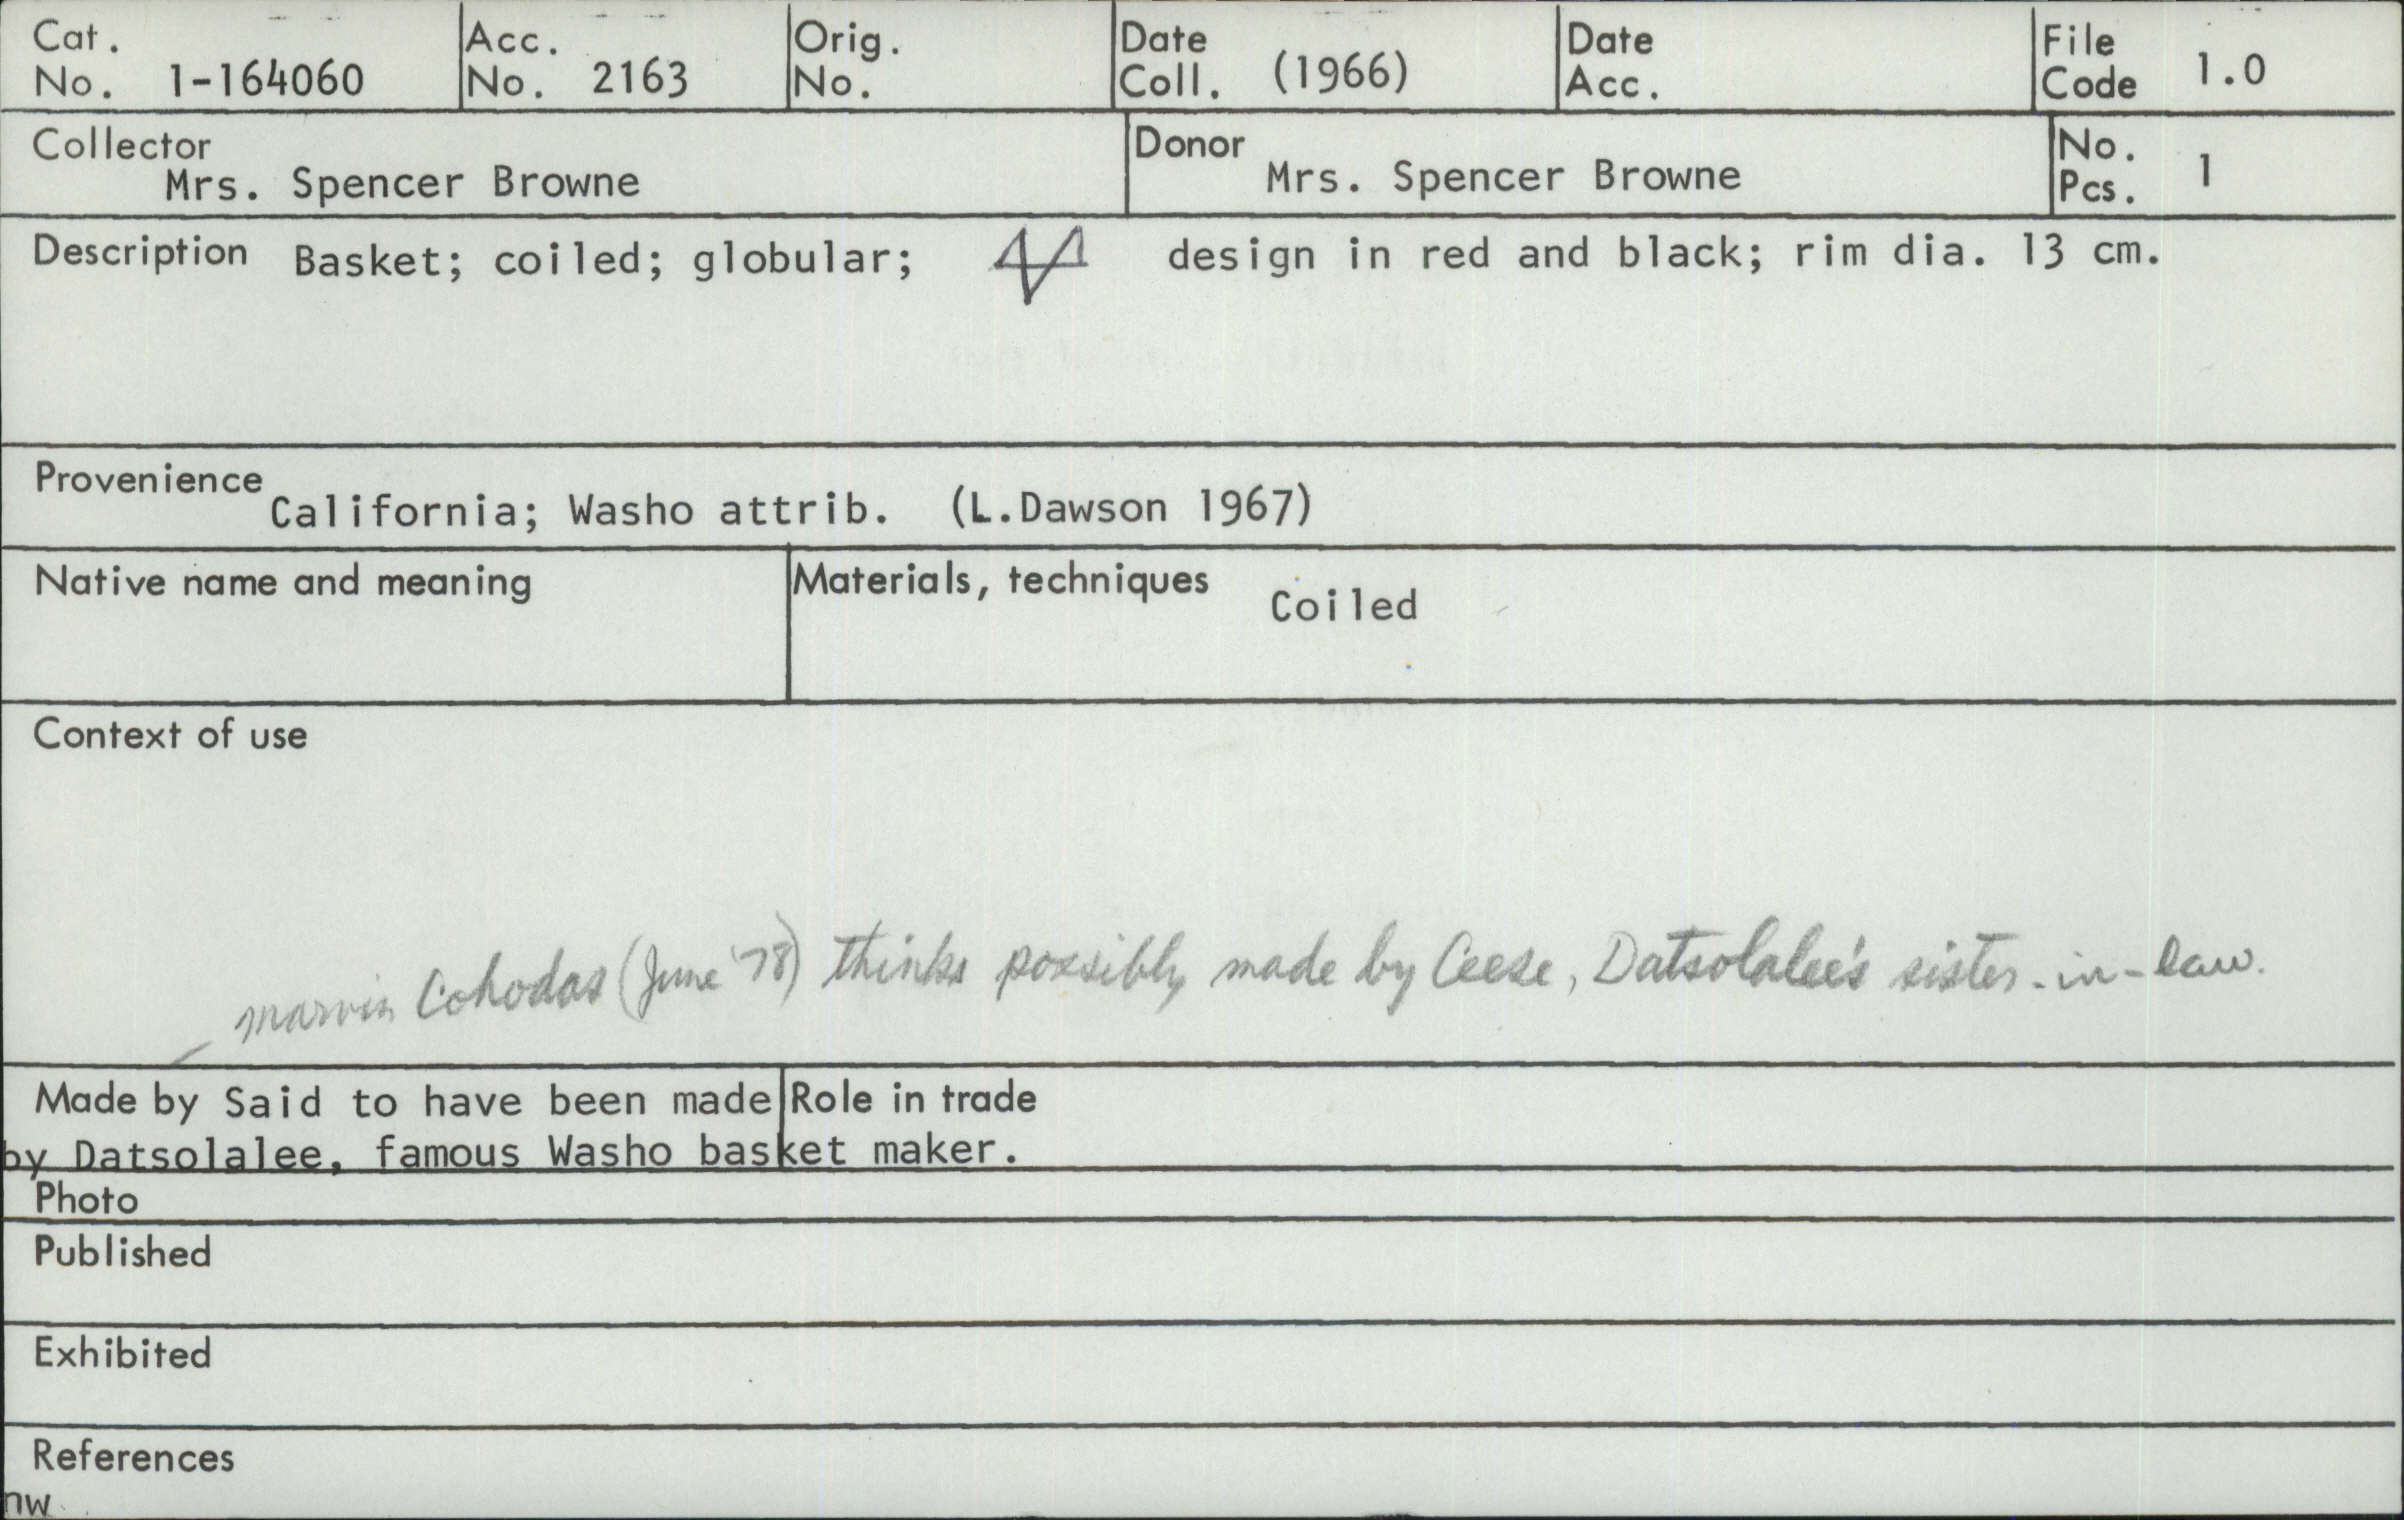 Cat. No. 1-164060 Acc. No. 2163 Orig. No. Date Coll. (1966) Date Acc. File Code 1.0
Collector Mrs. Spencer Browne Donor Mrs. Spencer Browne No. Pcs. 1
Description Basket; coiled; globular; design in red and black; rim dia. 13 cm.
Provenience California; Washo attrib. (L.Dawson 1967)
Native name and meaning Materials, techniques Coiled
Context of use
Marvin Cohodas (June '78) thinks possibly made by Ceese, Datsolalee's sister-in-law.
Made by Said to have been made
by Datsolalee, famous Washo basket maker.
Role in trade
Photo
Published
Exhibited
References
nw